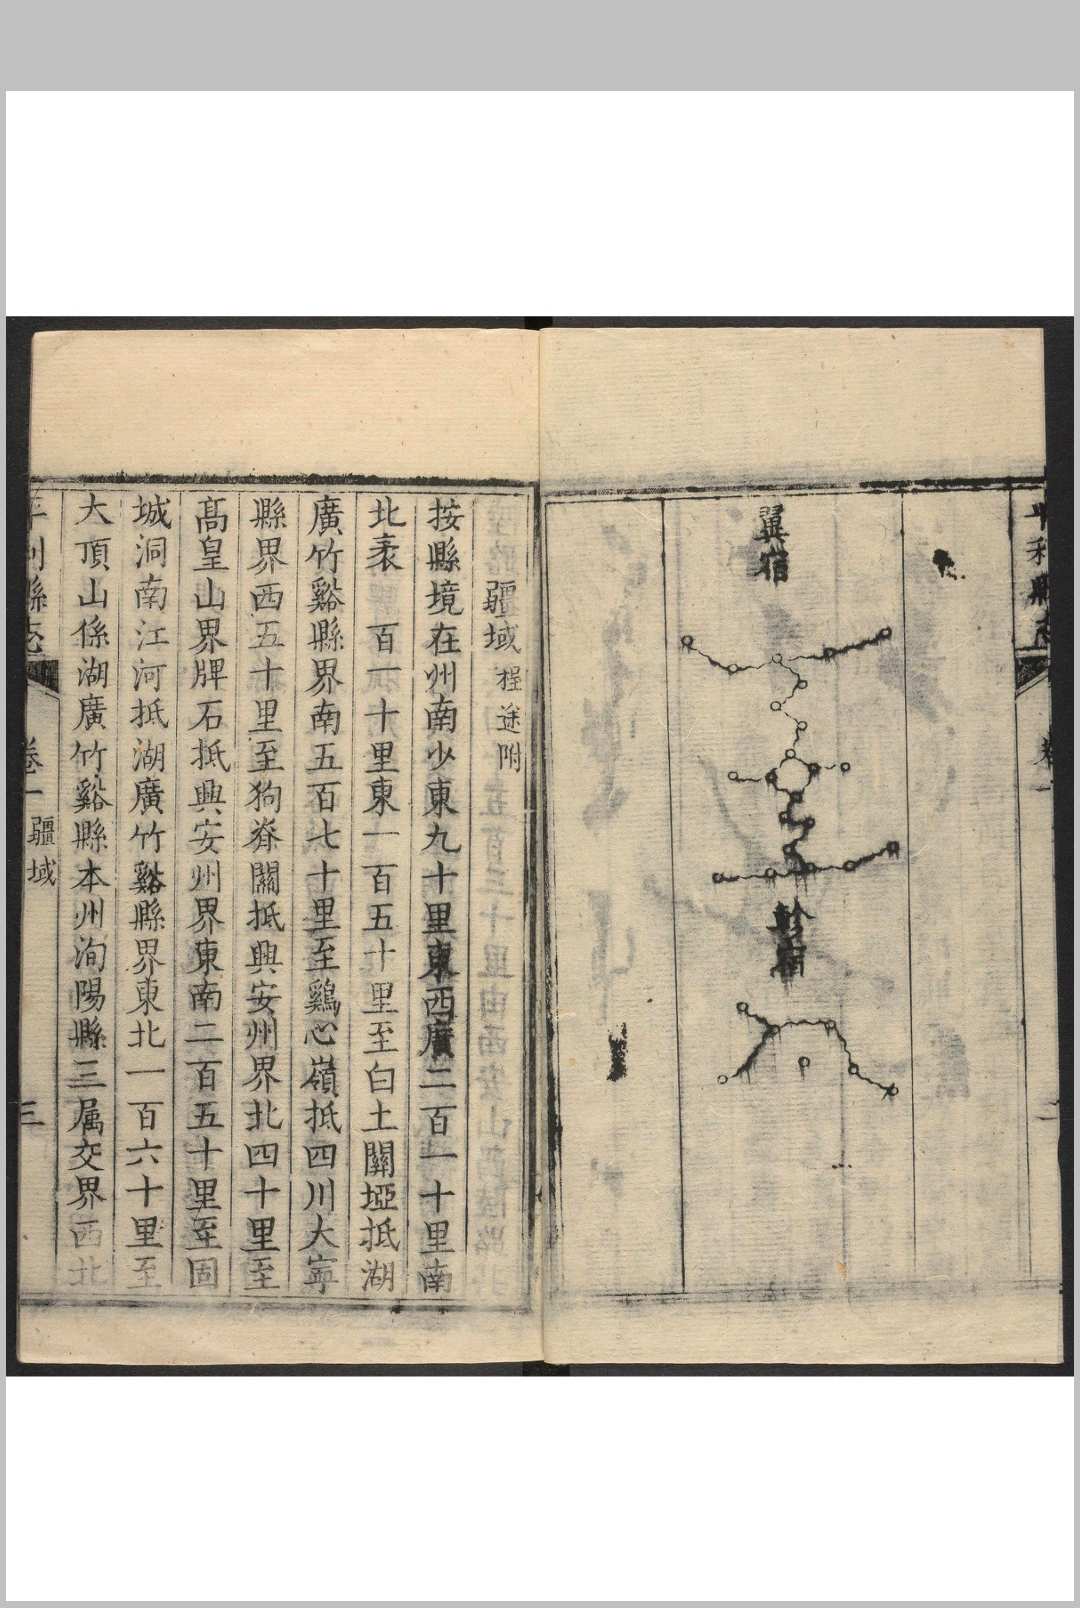 平利縣志 卷一 二
翼宿
軫宿
疆域 程途附
按縣境在州南少東九十里東西廣二百一十里南
北袤 百一十里東一百五十里至白土關埡抵湖
廣竹谿縣界南五百七十里至鷄心嶺抵四川大寧
縣界西五十里至狗脊關抵興安州界北四十里至
高皇山界牌石抵興安州界東南二百五十里至固
城洞南江河抵湖廣竹谿縣界東北一百六十里至
大頂山係湖廣竹谿縣本州洵陽縣三属交界西北
平利縣志 卷一 疆域 三